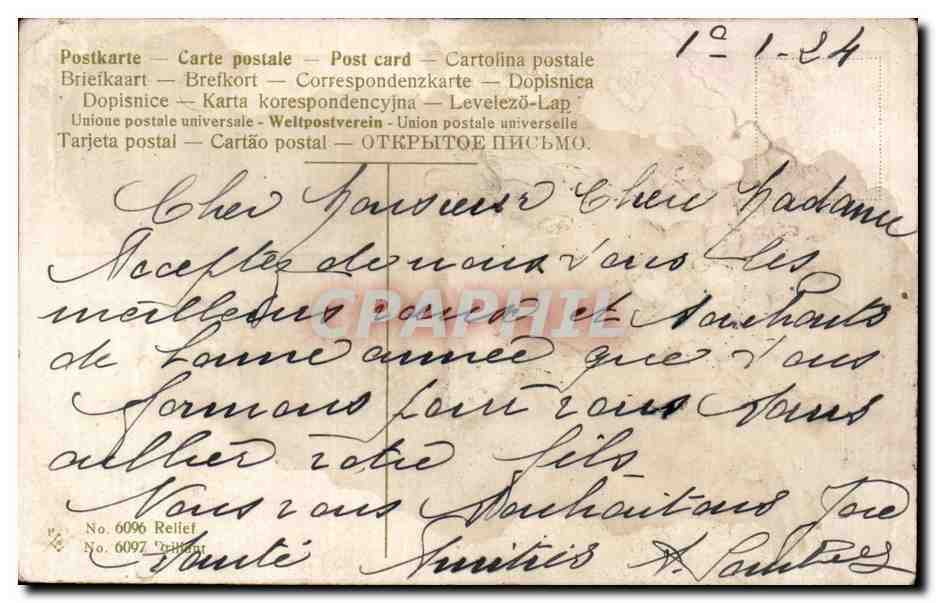 1º-1-24
Postkarte — Carte postale — Post card — Cartolina postale
Briefkaart — Brefkort — Correspondenzkarte — Dopisnica
Dopisnice — Karta korespondencyjna — Levelező-Lap
Unione postale universale - Weltpostverein - Union postale universelle
Tarjeta postal — Cartão postal — ОТКРЫТОЕ ПИСЬМО.
Cher Monsieur Chere Madame
Acceptez de nous tous les
meilleurs vœux et Souhaits
de bonne année que nous
formons pour vous Sans
oublier votre fils
Nous vous Souhaitons Joie
Santé Amitiés A.
No. 6096 Relief
No. 6097 Brillant
CPAPHIL